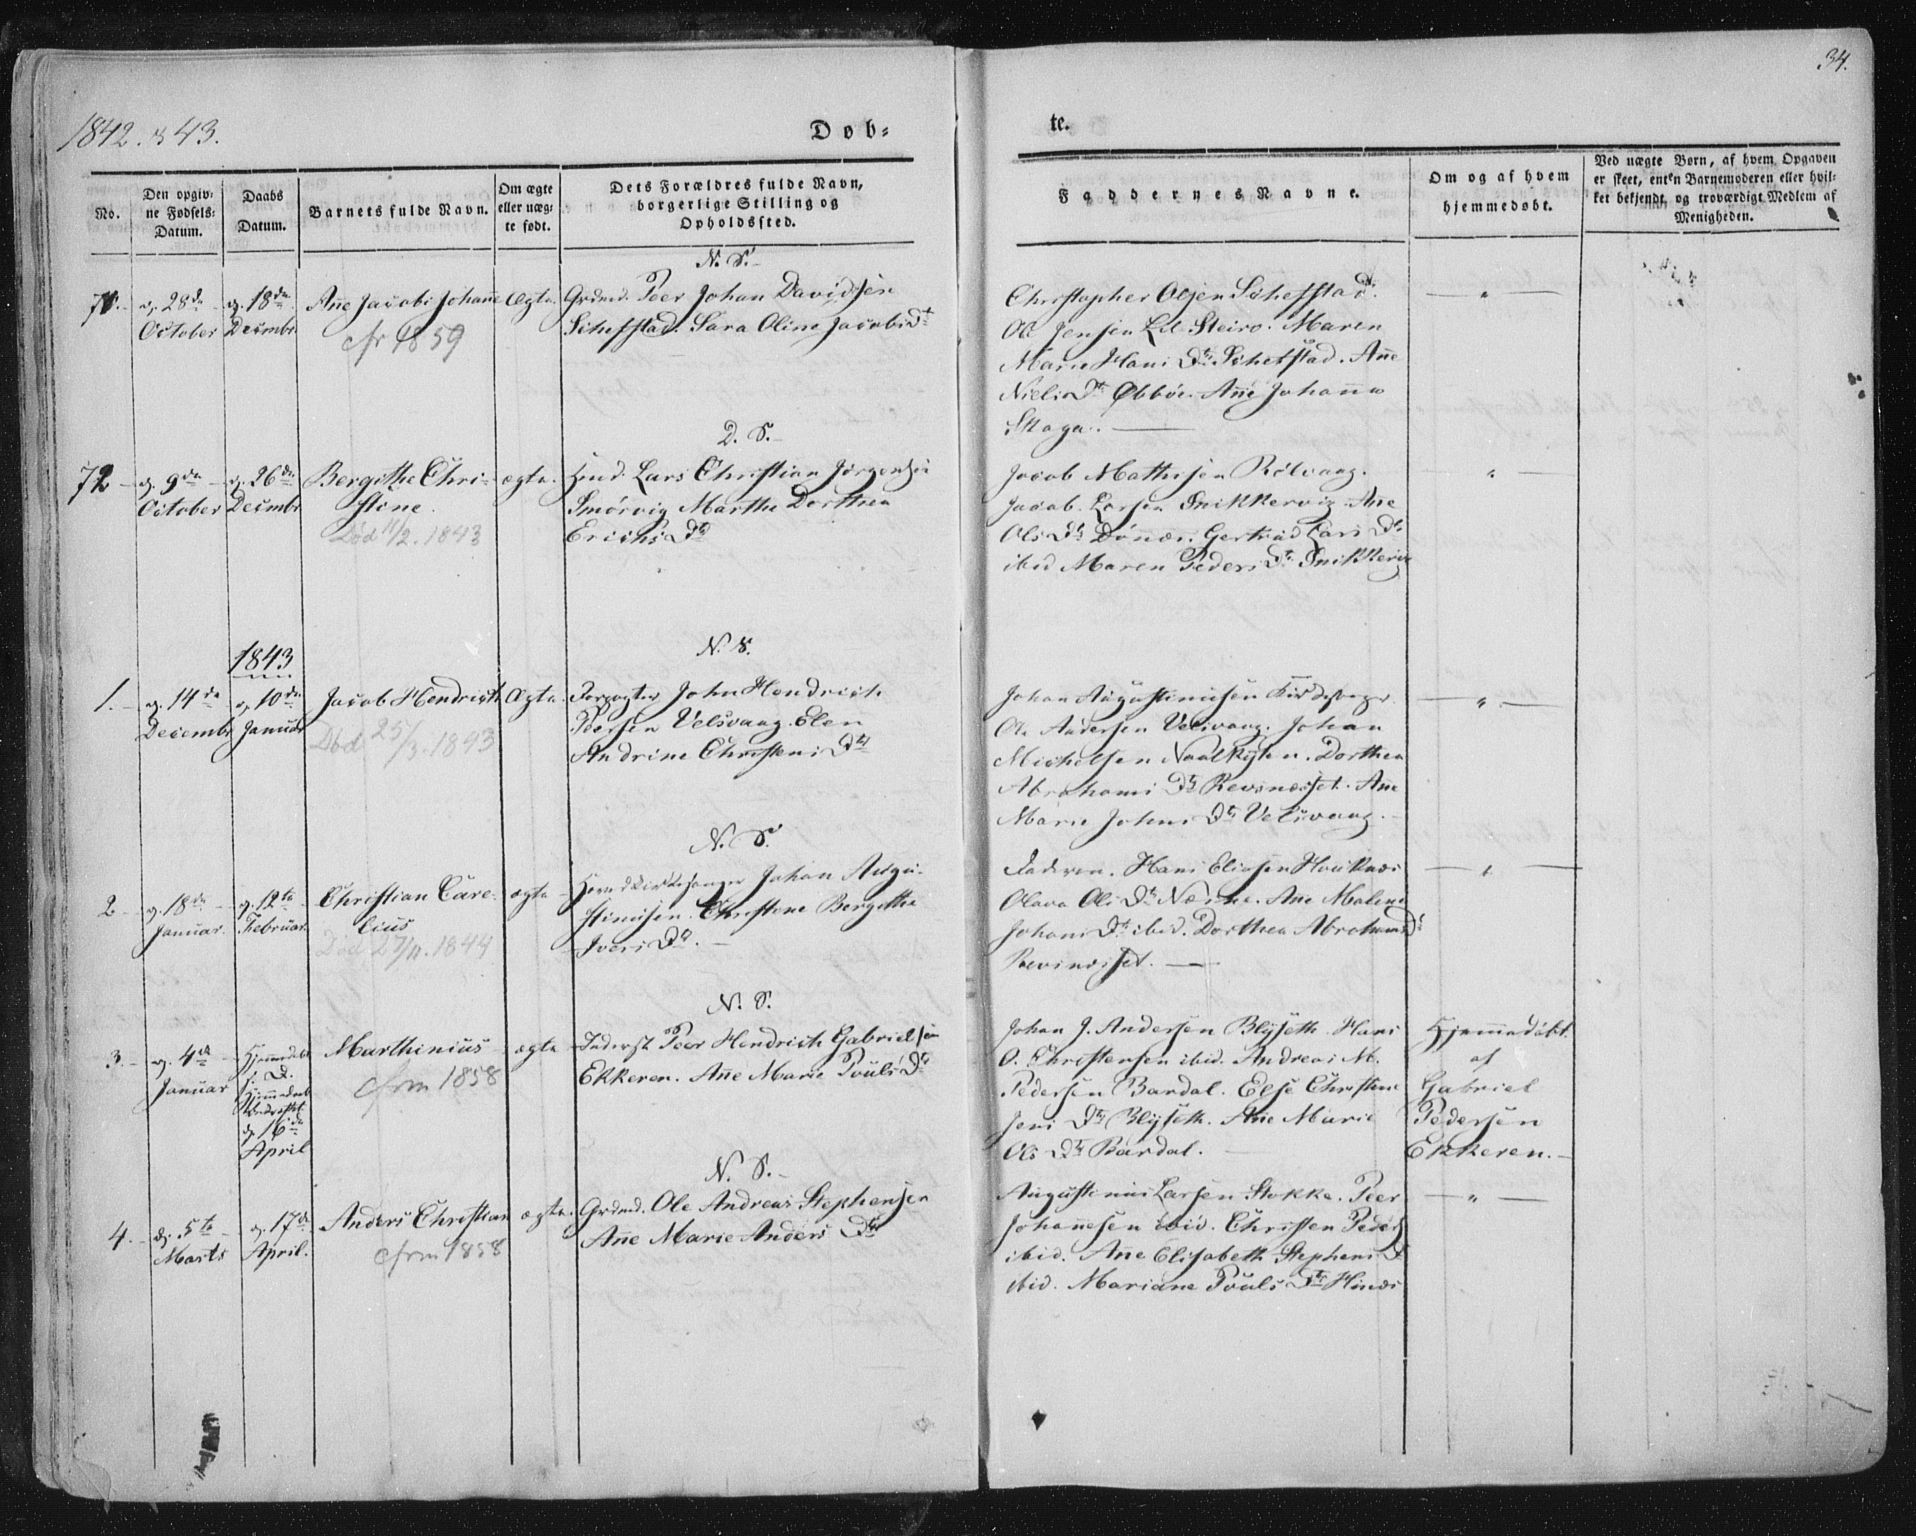 34.
1842. & 43.
Døb-
te.
No.
Den opgiv-
ne Fødsels-
Datum.
Daabs
Datum.
Barnets fulde Navn.
Om ægte
eller uæg-
te født.
Dets Forældres fulde Navn,
borgerlige Stilling og
Opholdssted.
Faddernes Navne.
Om og af hvem
hjemmedøbt.
Ved uægte Børn, af hvem Opgaven
er skeet, enten Barnemoderen eller hvil-
ket bekjendt og troværdigt Medlem af
Menigheden.
N. S.
71. d. 28de
October
d. 18de
Decembr
Ane Jacobi Johane
cfr 1859
Ægte
Grdmd. Peer Johan Davidsen
Sara Oline Jacobs Dt
Christopher Olsen
Ole Jensen Steiro. Maren
Marie Hans Dt. Ane
Niels Dt Øbbøe. Ane Johanna
Skaga.
D. S.
72 d. 9de
October
d. 26de
Decembr
Bergithe Chri-
stine.
Død 11/2. 1843
ægte.
Huusmd. Lars Christian Jørgensen
Smørvig Marthe Dorthea
Erichs Dtr
Jacob Mathisen Rølvaag.
Jacob Larsen Snikkervig Ane
Ols Dtr Dønæs. Gertrud Lars Dtr
ibid Maren Peders Dtr Snikkervig
1843
N. S.
1. d. 14de
Decembr
d. 10de
Januar
Jacob Hendrich
Død 25/3. 1843
Ægte.
Forpagter John Hendrich
Peersen Velsvaag. Elen
Andrine Christens Dtr
Johan Augustinusen Kirkesanger
Ole Andersen Velsvaag. Johan
Michelsen. Dorthea
Abrahams Dtr Revsnæsset. Ane
Marie Johns Dtr Velsvaag.
N. S.
2 d. 18de
Januar.
d. 12te
Februar.
Christian Care-
lius
Død 27/11. 1844
ægte
Kirkesanger Johan Augu-
stinusen. Christine Bergitha
Ivers Dtr.
Faderen. Hans Eliasen Houknæs
Olava Ols Dtr. Ane Malene
Johans Dtr ibid. Dorthea Abrahams Dtr
Revsnæsset.
N. S.
3. d. 4de
Januar
d. 16de
April
Marthinius
cfrm 1858
ægte
Inderst Peer Hendrich Gabrielsen
Ekkeren. Ane Marie Pouls Dtr
Johan J. Andersen Blyseth. Hans
O. Christensen ibid. Andreas M.
Pedersen Bardal. Else Christine
Jens Dtr Blyseth. Ane Marie
Ols Dtr Bardal.
Hjemmedøbt
af
Gabriel
Pedersen
Ekkeren.
N. S.
4. d. 5te
Marts
d. 17de
April.
Anders Christian
cfrm 1858
ægte.
Grdmd. Ole Andreas Stephensen
Ane Marie Anders Dtr
Augustinus Larsen Stokke. Peer
Johannesen ibid. Christen Peders.
ibid. Ane Elisabeth Stephens D
ibid. Mariane Pouls Dtr Hinæs